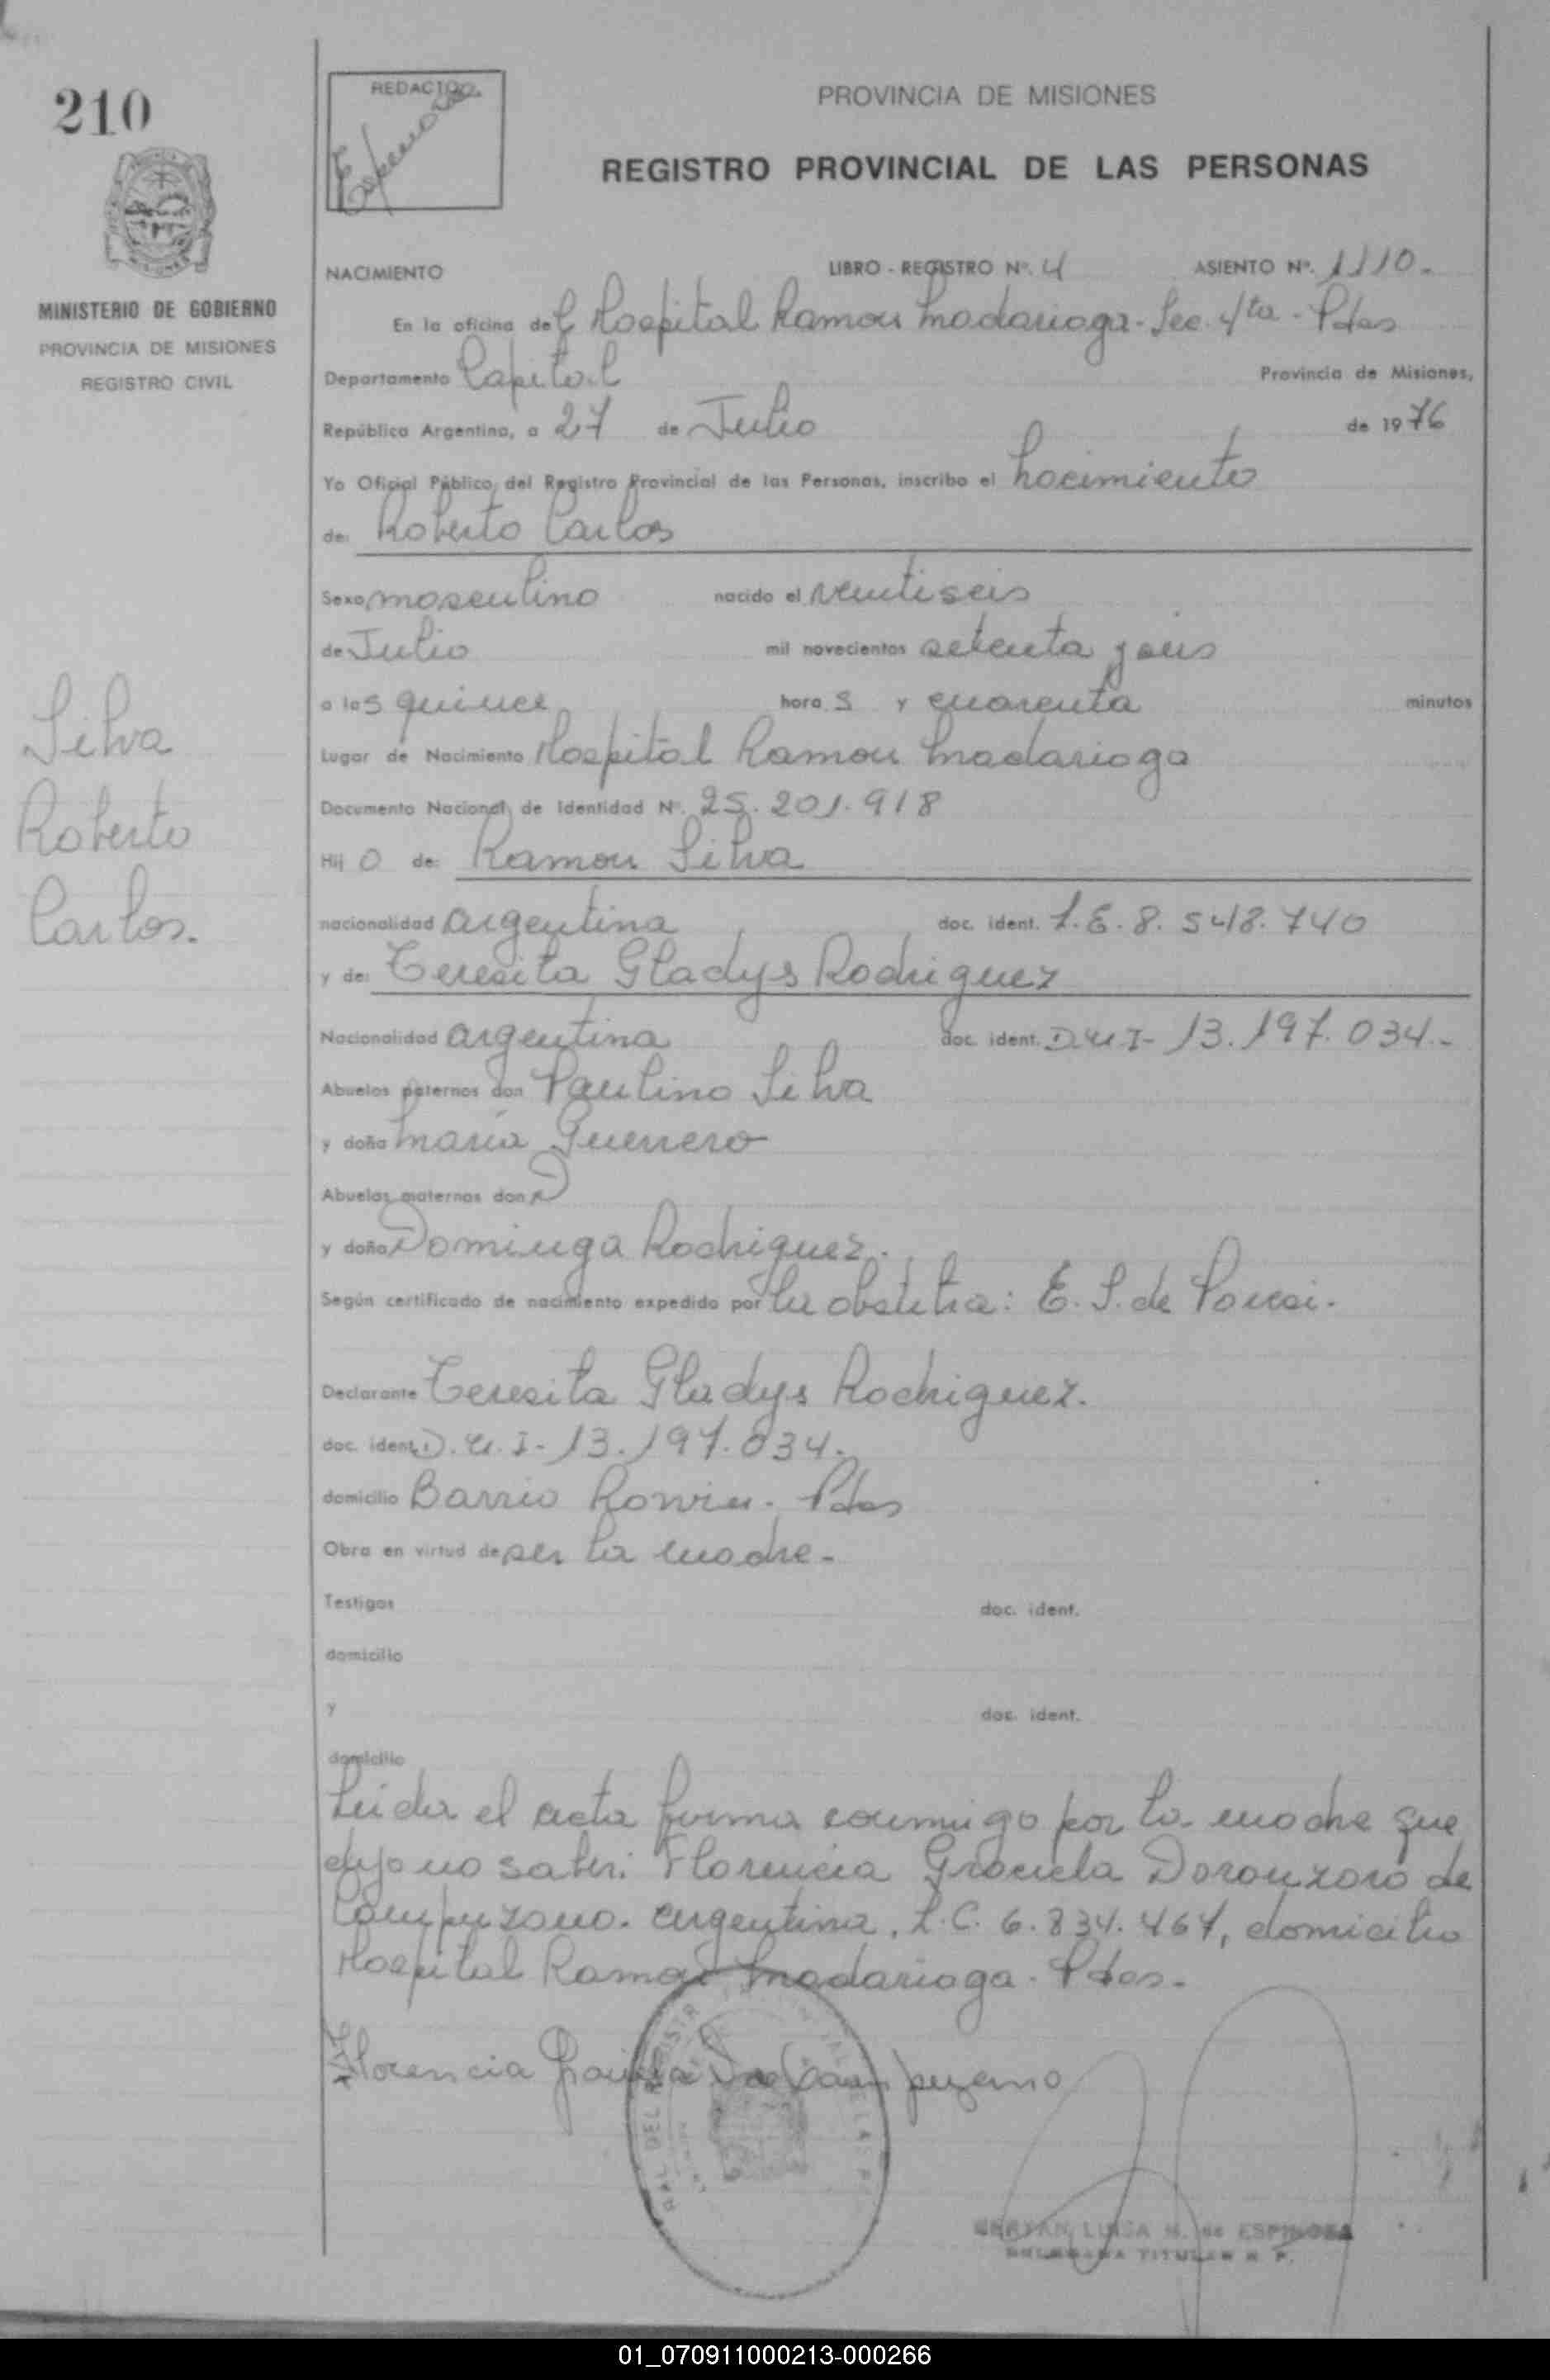 210
REDACTOR
Espinoza
PROVINCIA DE MISIONES
REGISTRO PROVINCIAL DE LAS PERSONAS
MINISTERIO DE GOBIERNO
PROVINCIA DE MISIONES
REGISTRO CIVIL
NACIMIENTO LIBRO - REGISTRO Nº. 4 ASIENTO Nº. 1110.
En la oficina del Hospital Ramon Madariaga - Sec. 4ta - Pdas
Departamento Capital Provincia de Misiones,
República Argentina, a 27 de Julio de 1976
Yo Oficial Público, del Registro Provincial de las Personas, inscribo el nacimiento
de: Roberto Carlos
Sexo masculino nacido el veintiseis
de Julio mil novecientos setenta y seis
a las quince hora s y cuarenta minutos
Lugar de Nacimiento Hospital Ramon Madariaga
Documento Nacional de Identidad Nº. 25.201.918
Hij o de: Ramon Silva
nacionalidad argentina doc. ident. L.E. 8.548.740
y de: Teresita Gladys Rodriguez
Nacionalidad argentina doc. ident. D.N.I- 13.197.034.-
Abuelos paternos don Paulino Silva
y doña Maria Guerrero
Abuelos maternos don
y doña Dominga Rodriguez.
Según certificado de nacimiento expedido por la obstetra: E. S. de
Declarante Teresita Gladys Rodriguez.
doc. ident. D.N.I- 13.197.034.
domicilio Barrio Rowin. Pdas
Obra en virtud de ser la madre.-
Testigos doc. ident.
domicilio
y doc. ident.
domicilio
Leida el acta firma conmigo por la madre que
dijo no saber: Florencia Graciela Doronzoro de
Campuzano. argentina, L.C. 6.834.467, domicilio
Hospital Ramon Madariaga. Pdas.-
Florencia Graciela D de Campuzano
LUISA M. de ESPINOZA
DELEGADA TITULAR R. P.
Silva
Roberto
Carlos.
01_070911000213-000266